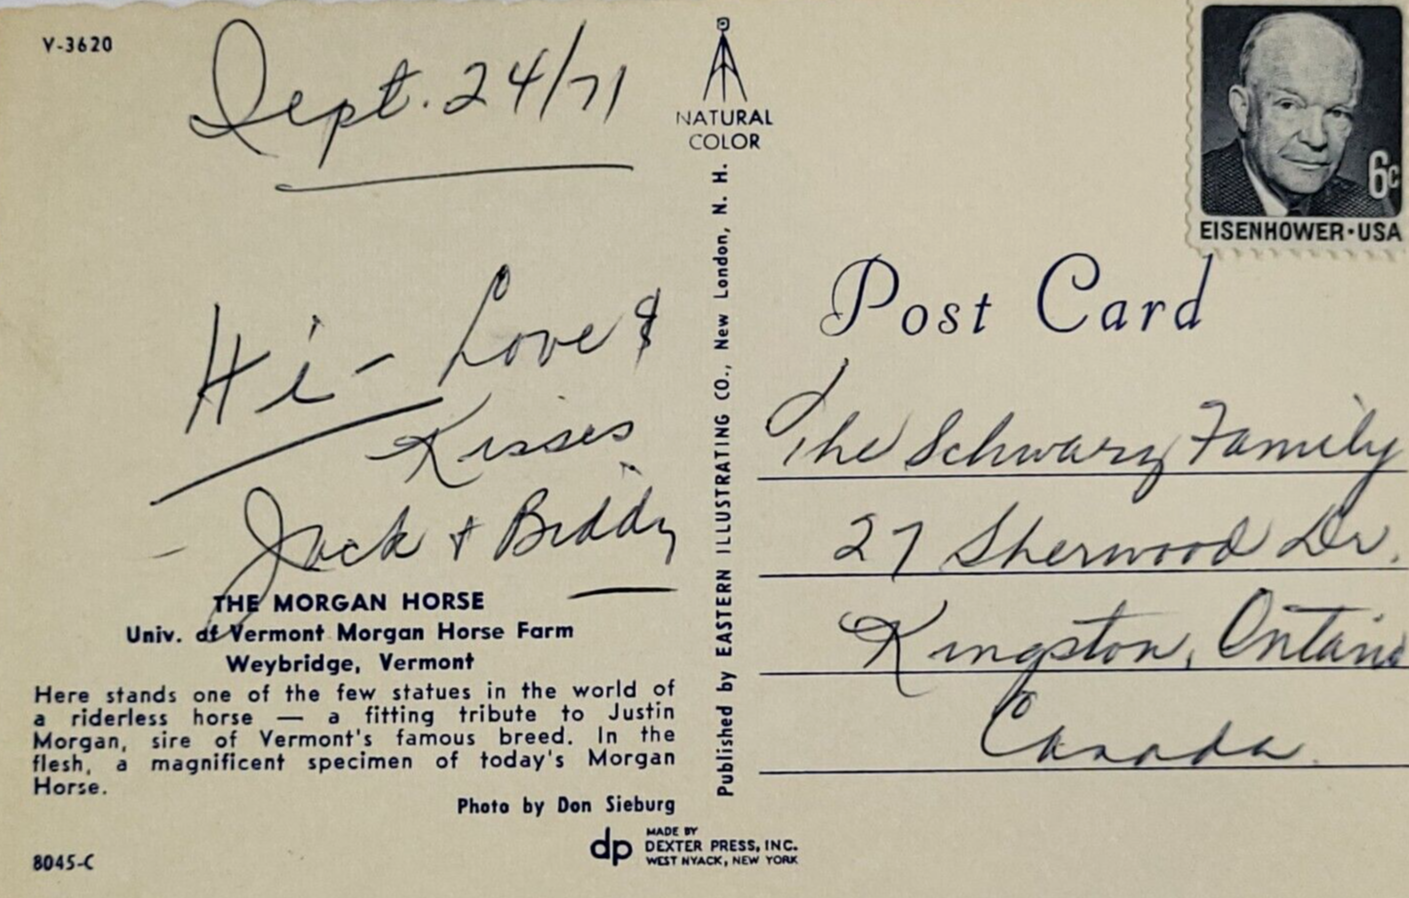 V-3620
Sept. 24/71
Hi - Love &
Kisses
- Jack + Biddy
THE MORGAN HORSE
Univ. of Vermont Morgan Horse Farm
Weybridge, Vermont
Here stands one of the few statues in the world of
a riderless horse — a fitting tribute to Justin
Morgan, sire of Vermont's famous breed. In the
flesh, a magnificent specimen of today's Morgan
Horse.
Photo by Don Sieburg
8045-C
NATURAL
COLOR
Published by EASTERN ILLUSTRATING CO., New London, N. H.
dp
MADE BY
DEXTER PRESS, INC.
WEST NYACK, NEW YORK
6c
EISENHOWER·USA
Post Card
The Schwarz Family
27 Sherwood Dr.
Kingston, Ontario
Canada.